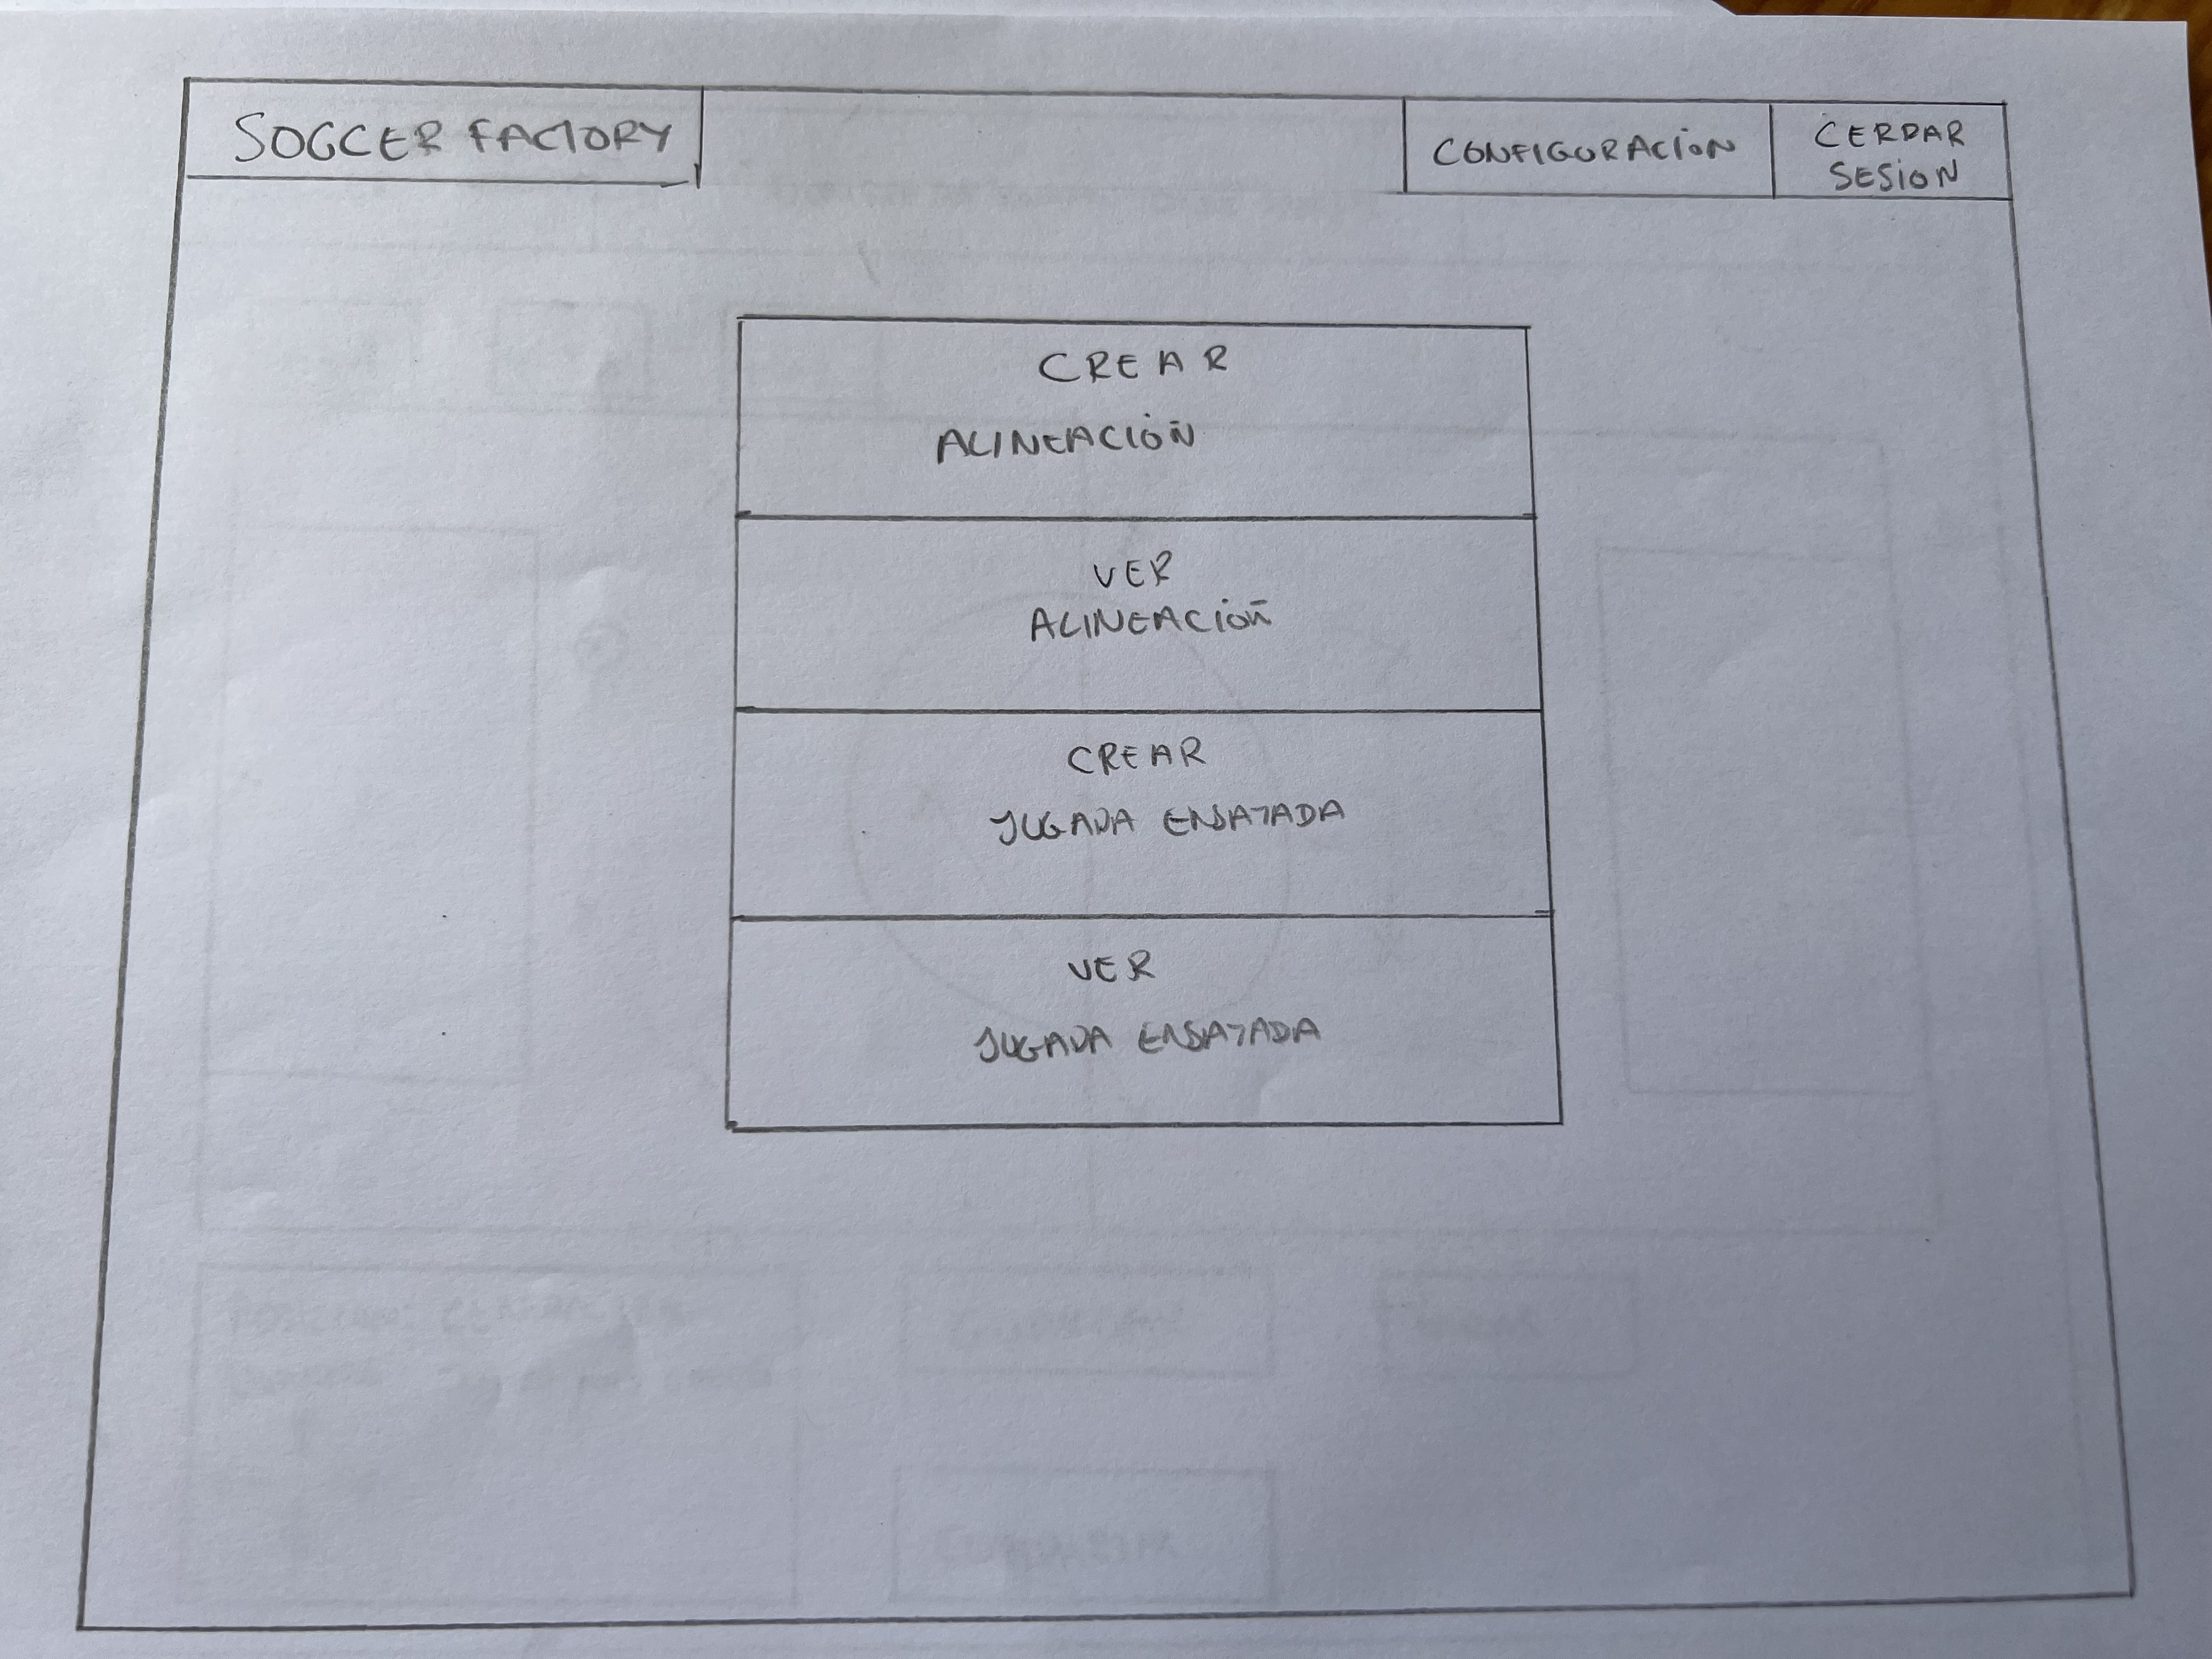 SOCCER FACTORY
CONFIGURACIÓN
CERRAR
SESION
CREAR
ALINEACIÓN
VER
ALINEACIÓN
CREAR
JUGADA ENSAYADA
VER
JUGADA ENSAYADA